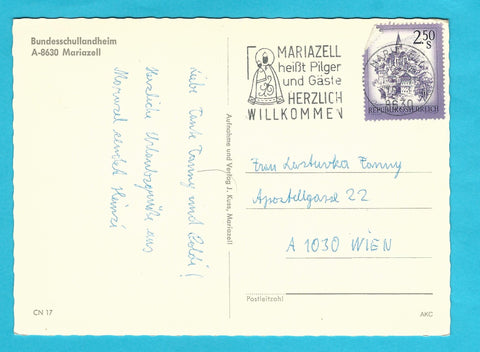 Bundesschullandheim
A-8630 Mariazell
Liebe Tante Fanny und Poldi!
Herzliche Urlaubsgrüße aus
Mariazell sendet Heinzi
CN 17
Aufnahme und Verlag J. Kuss, Mariazell
MARIAZELL
heißt Pilger
und Gäste
HERZLICH
WILLKOMMEN
2.50
S
8630
REPUBLIK ÖSTERREICH
Frau Fanny
Apostelgasse 22
A 1030 WIEN
Postleitzahl
AKC